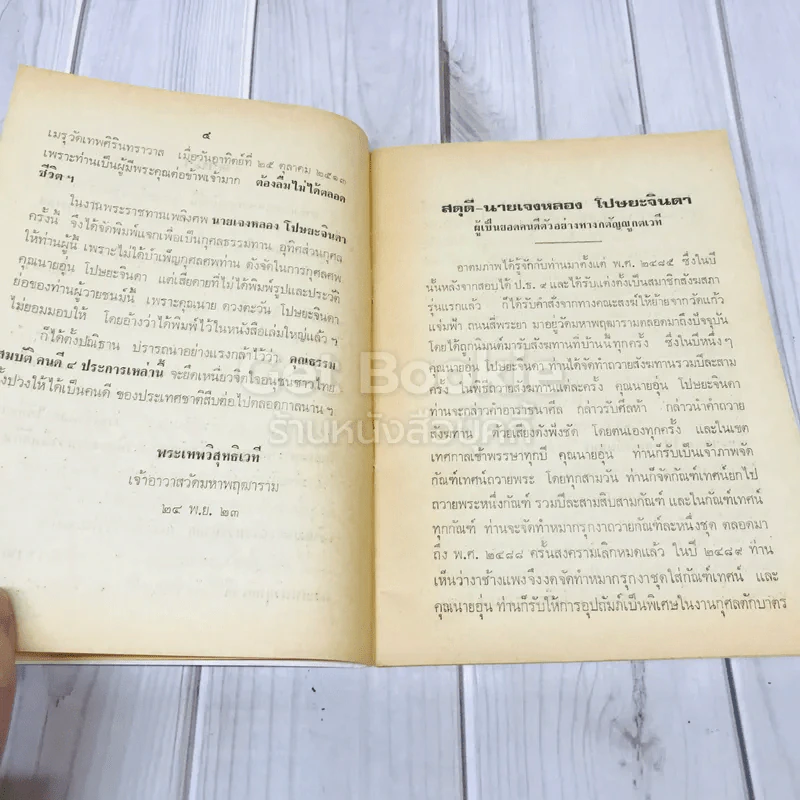 ๔
เมรุวัดเทพศิรินทราวาส เมื่อวันอาทิตย์ที่ ๒๕ ตุลาคม ๒๕๑๓
เพราะท่านเป็นผู้มีพระคุณต่อข้าพเจ้ามาก ต้องลืมไม่ได้ตลอด
ชีวิต ฯ
ในงานพระราชทานเพลิงศพ นายเจงหลอง โปษยะจินดา
ครั้งนี้ จึงได้จัดพิมพ์แจกเพื่อเป็นกุศลธรรมทาน อุทิศส่วนกุศล
ให้ท่านผู้นี้ เพราะไม่ได้บำเพ็ญกุศลศพท่าน ดังจัดในการกุศลศพ
คุณนายอุ่น โปษยะจินดา แต่เสียดายที่ไม่ได้พิมพ์รูปและประวัติ
ย่อของท่านผู้วายชนม์นี้ เพราะคุณนาย ดวงตะวัน โปษยะจินดา
ไม่ยอมมอบให้ โดยอ้างว่าได้พิมพ์ไว้ในหนังสือเล่มใหญ่แล้ว ๆ
ก็ได้ตั้งปณิธาน ปรารถนาอย่างแรงกล้าไว้ว่า คุณธรรม
สมบัติ คนดี ๔ ประการเหล่านี้ จะยึดเหนี่ยวจิตใจอนุชนชาวไทย
ทั้งปวงให้ได้เป็นคนดี ของประเทศชาติสืบต่อไปตลอดกาลนาน ฯ
พระเทพวิสุทธิเวที
เจ้าอาวาสวัดมหาพฤฒาราม
๒๔ พ.ย. ๒๓
สดุดี-นายเจงหลอง โปษยะจินดา
ผู้เป็นยอดคนดีตัวอย่างทางกตัญญูกตเวที
อาตมภาพได้รู้จักกับท่านมาตั้งแต่ พ.ศ. ๒๔๘๕ ซึ่งในปี
นั้นหลังจากสอบได้ ป.ธ. ๙ และได้รับแต่งตั้งเป็นสมาชิกสังฆสภา
รุ่นแรกแล้ว ก็ได้รับคำสั่งจากทางคณะสงฆ์ให้ย้ายจากวัดแก้ว
แจ่มฟ้า ถนนสี่พระยา มาอยู่วัดมหาพฤฒารามตลอดมาถึงปัจจุบัน
โดยได้ถูกนิมนต์มารับสังฆทานที่บ้านนี้ทุกครั้ง ซึ่งในปีหนึ่งๆ
คุณนายอุ่น โปษยะจินดา ท่านได้จัดทำถวายสังฆทานรวมปีละสาม
ครั้ง ในพิธีถวายสังฆทานแต่ละครั้ง คุณนายอุ่น โปษยะจินดา
ท่านจะกล่าวคำอาราธนาศีล กล่าวรับศีลห้า กล่าวนำคำถวาย
สังฆทาน ด้วยเสียงดังฟังชัด โดยตนเองทุกครั้ง และในเขต
เทศกาลเข้าพรรษาทุกปี คุณนายอุ่น ท่านก็รับเป็นเจ้าภาพจัด
กัณฑ์เทศน์ถวายพระ โดยทุกสามวัน ท่านก็จัดกัณฑ์เทศน์ยกไป
ถวายพระหนึ่งกัณฑ์ รวมปีละสามสิบสามกัณฑ์ และในกัณฑ์เทศน์
ทุกกัณฑ์ ท่านจะจัดทำหมากรุกงาถวายกัณฑ์ละหนึ่งชุด ตลอดมา
ถึง พ.ศ. ๒๔๘๘ ครั้นสงครามเลิกหมดแล้ว ในปี ๒๔๘๙ ท่าน
เห็นว่างาช้างแพงจึงงดจัดทำหมากรุกงาชุดใส่กัณฑ์เทศน์ และ
คุณนายอุ่น ท่านก็รับให้การอุปถัมภ์เป็นพิเศษในงานกุศลตักบาตร
Get Book
ร้านหนังสือ